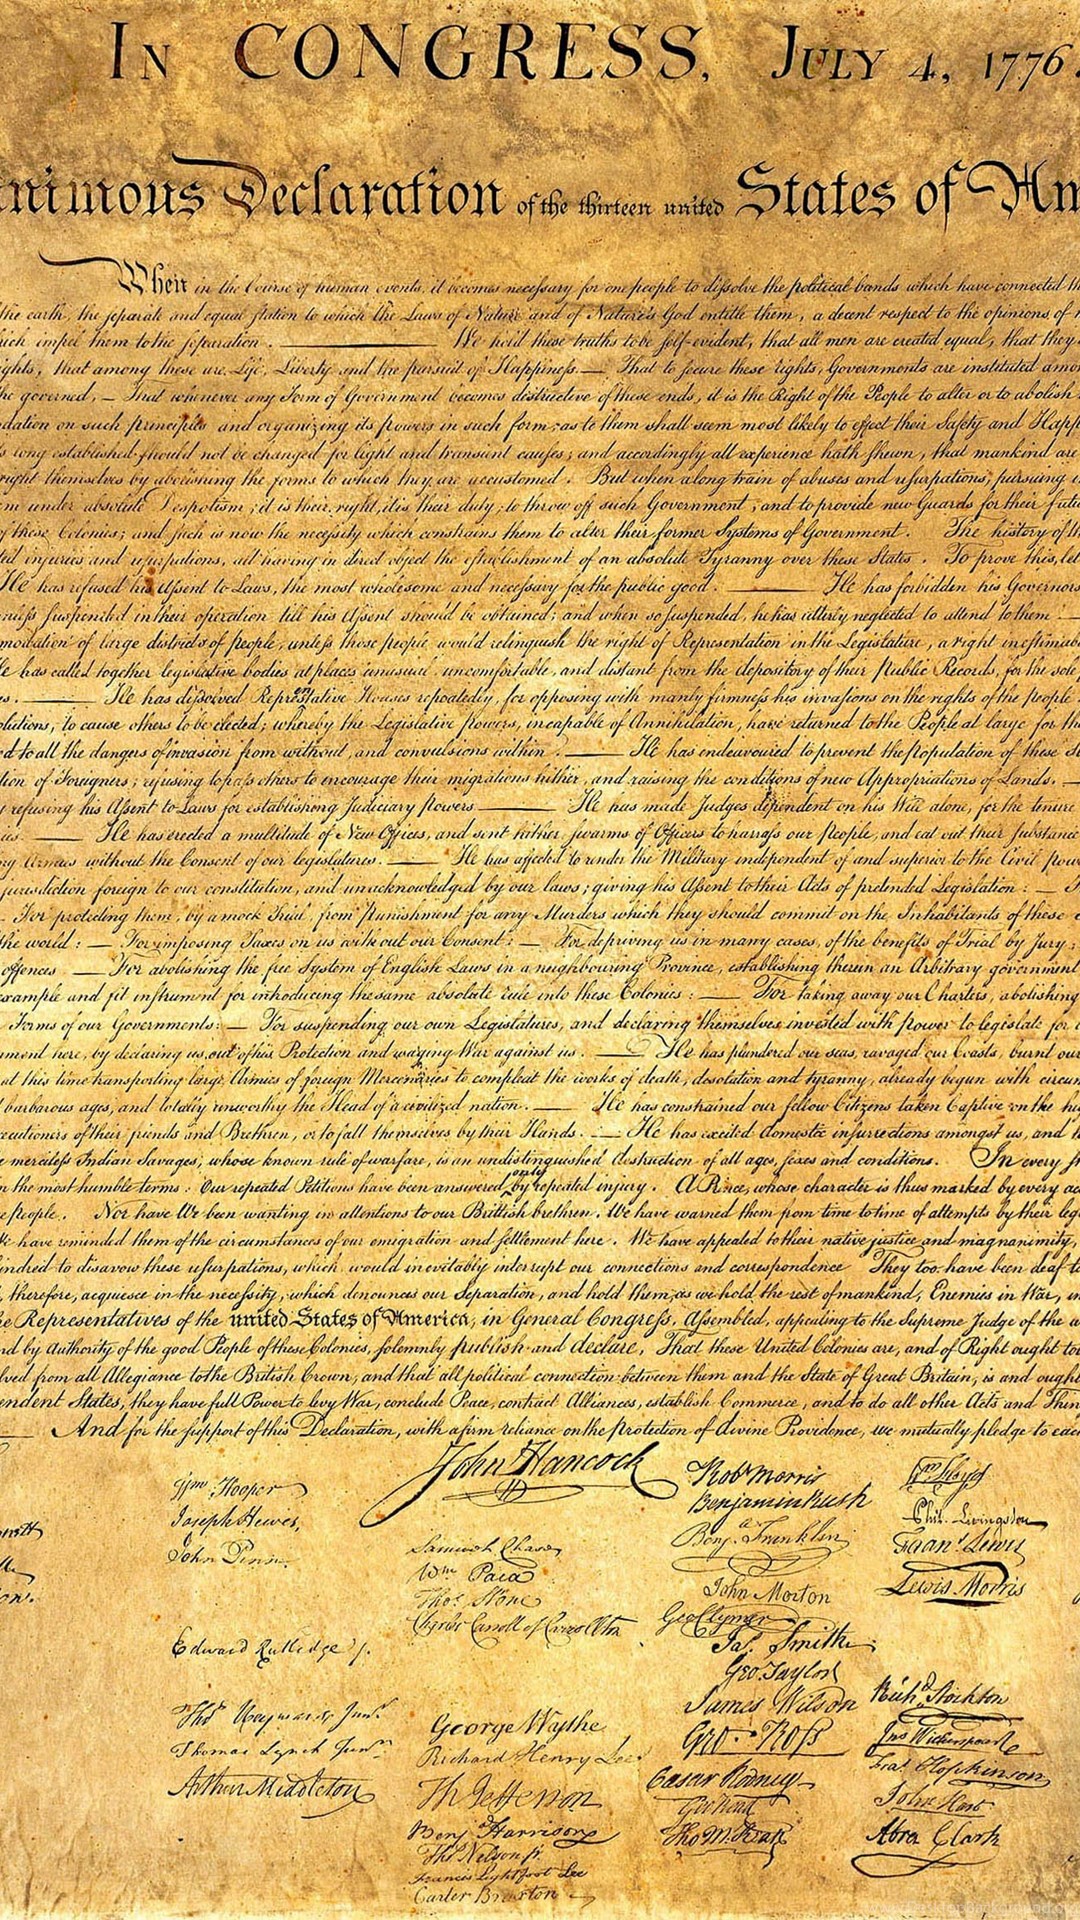 In CONGRESS, July 4, 1776.
nimous Declaration of the thirteen united States of Am
When in the Course of human events, it becomes necessary for one people to dissolve the political bands which have connected th
the earth, the separate and equal station to which the Laws of Nature and of Nature's God entitle them, a decent respect to the opinions of
ich impel them to the separation. We hold these truths to be self-evident, that all men are created equal, that they
ights, that among these are Life, Liberty and the pursuit of Happiness.— That to secure these rights, Governments are instituted amo
he governed,— That whenever any Form of Government becomes destructive of these ends, it is the Right of the People to alter or to abolish
dation on such principles and organizing its powers in such form, as to them shall seem most likely to effect their Safety and Happ
s long established should not be changed for light and transient causes; and accordingly all experience hath shewn, that mankind are
right themselves by abolishing the forms to which they are accustomed. But when a long train of abuses and usurpations, pursuing
m under absolute Despotism, it is their right, it is their duty, to throw off such Government, and to provide new Guards for their futu
of these Colonies; and such is now the necessity which constrains them to alter their former Systems of Government. The history of
ted injuries and usurpations, all having in direct object the establishment of an absolute Tyranny over these States. To prove this, let
He has refused his Assent to Laws, the most wholesome and necessary for the public good. He has forbidden his Governors
unless suspended in their operation till his Assent should be obtained; and when so suspended, he has utterly neglected to attend to them —
modation of large districts of people, unless those people would relinquish the right of Representation in the Legislature, a right inestimab
He has called together legislative bodies at places unusual, uncomfortable, and distant from the depository of their Public Records, for the sole
es. He has dissolved Representative Houses repeatedly, for opposing with manly firmness his invasions on the rights of the people
olutions, to cause others to be elected; whereby the Legislative powers, incapable of Annihilation, have returned to the People at large for
ed to all the dangers of invasion from without, and convulsions within. He has endeavoured to prevent the population of these
tion of Foreigners; refusing to pass others to encourage their migrations hither, and raising the conditions of new Appropriations of Lands. —
y refusing his Assent to Laws for establishing Judiciary powers He has made Judges dependent on his Will alone, for the tenure
He has erected a multitude of New Offices, and sent hither swarms of Officers to harrass our people, and eat out their substance
ng Armies without the Consent of our legislatures. He has affected to render the Military independent of and superior to the Civil pow
jurisdiction foreign to our constitution, and unacknowledged by our laws; giving his Assent to their Acts of pretended Legislation: —
For protecting them, by a mock Trial, from punishment for any Murders which they should commit on the Inhabitants of these
the world: — For imposing Taxes on us without our Consent: — For depriving us in many cases, of the benefits of Trial by Jury:
offences — For abolishing the free System of English Laws in a neighbouring Province, establishing therein an Arbitrary government
example and fit instrument for introducing the same absolute rule into these Colonies: — For taking away our Charters, abolishing
Forms of our Governments: — For suspending our own Legislatures, and declaring themselves invested with power to legislate for
nment here, by declaring us out of his Protection and waging War against us. He has plundered our seas, ravaged our Coasts, burnt our
at this time transporting large Armies of foreign Mercenaries to compleat the works of death, desolation and tyranny, already begun with circum
barbarous ages, and totally unworthy the Head of a civilized nation. He has constrained our fellow Citizens taken Captive on the hi
ecutioners of their friends and Brethren, or to fall themselves by their Hands. He has excited domestic insurrections amongst us, and
e merciless Indian Savages, whose known rule of warfare, is an undistinguished destruction of all ages, sexes and conditions. In every
n the most humble terms: Our repeated Petitions have been answered only by repeated injury. A Prince, whose character is thus marked by every ac
e people. Nor have We been wanting in attentions to our Brittish brethren. We have warned them from time to time of attempts by their leg
We have reminded them of the circumstances of our emigration and settlement here. We have appealed to their native justice and magnanimity,
indred to disavow these usurpations, which, would inevitably interrupt our connections and correspondence They too have been deaf
, therefore, acquiesce in the necessity, which denounces our Separation, and hold them, as we hold the rest of mankind, Enemies in War, in
he Representatives of the united States of America, in General Congress, Assembled, appealing to the Supreme Judge of the
nd by Authority of the good People of these Colonies, solemnly publish and declare, That these United Colonies are, and of Right ought to
lved from all Allegiance to the British Crown, and that all political connection between them and the State of Great Britain, is and ought
endent States, they have full Power to levy War, conclude Peace, contract Alliances, establish Commerce, and to do all other Acts and Thin
And for the support of this Declaration, with a firm reliance on the protection of divine Providence, we mutually pledge to each
John Hancock
Wm Hooper
Joseph Hewes,
John Penn
Edward Rutledge
Thos Heyward Junr.
Thomas Lynch Junr.
Arthur Middleton
Samuel Chase
Wm Paca
Thos Stone
Charles Carroll of Carrollton
George Wythe
Richard Henry Lee
Th Jefferson
Benj Harrison
Thos Nelson jr.
Francis Lightfoot Lee
Carter Braxton
Robt Morris
Benjamin Rush
Benja. Franklin
John Morton
Geo Clymer
Jas. Smith
Geo. Taylor
James Wilson
Geo. Ross
Caesar Rodney
Geo Read
Tho M:Kean
Phil. Livingston
Frans. Lewis
Lewis Morris
Richd. Stockton
Jno Witherspoon
Fras. Hopkinson
John Hart
Abra Clark